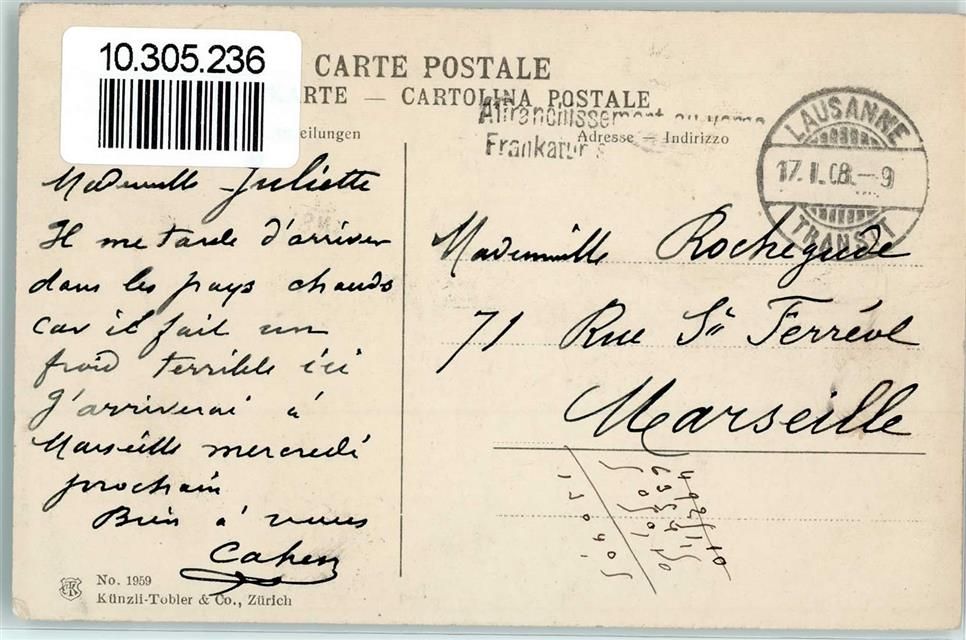 10.305.236
CARTE POSTALE
KARTE — CARTOLINA POSTALE
Affranchissement au verso
Frankatur
eilungen
Adresse — Indirizzo
LAUSANNE
17. I. 08. — 9
TRANSIT
Mademoiselle Juliette
Il me tarde d'arriver
dans les pays chauds
car il fait un
froid terrible ici
J'arriverai à
Marseille mercredi
prochain
Bien à vous
Cahen
Mademoiselle Rochegude
71 Rue St Ferréol
Marseille
No. 1959
Künzli-Tobler & Co., Zürich